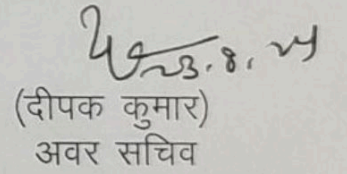 23.8.24
(दीपक कुमार)
अवर सचिव